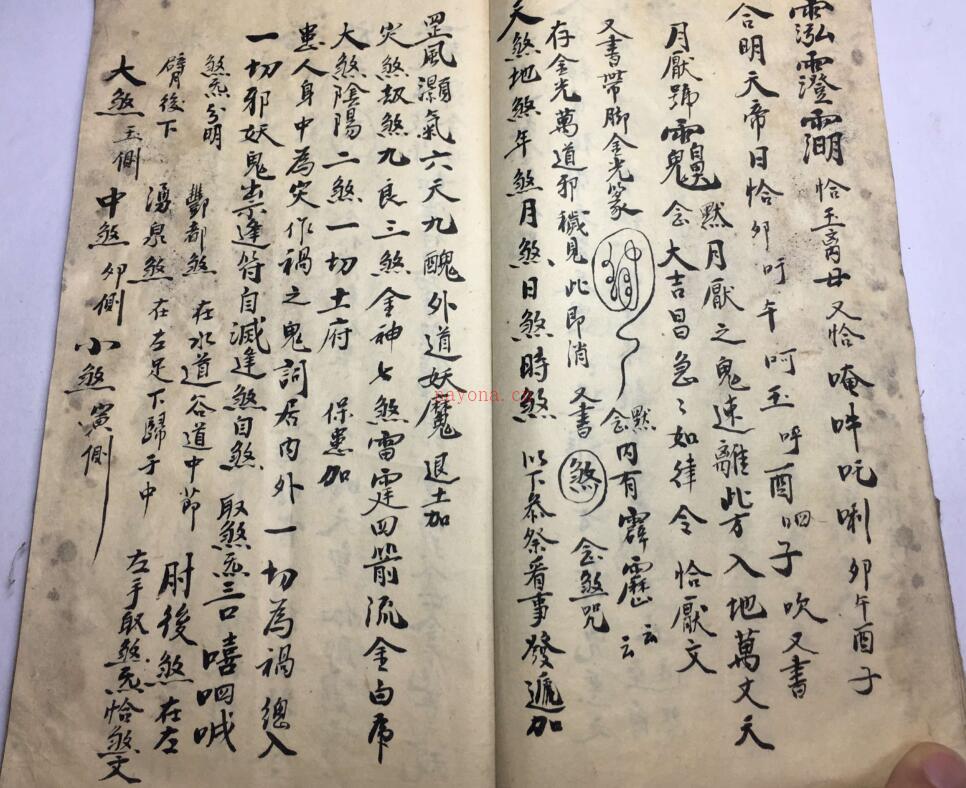 恰玉离母又恰唵吽吒唎卯午酉子
合明天帝日恰卯吁午呵玉呼酉呬子吹又書
月厭號䨲念默月厭之鬼速離此方入地萬丈天
大吉昌急〻如律令恰厭文
又書帶脚金光篆 念默内有霹靂云云
存金光萬道邪穢見此即消又書煞念煞咒
天煞地煞年煞月煞日煞時煞以下叅祭看事發遞加
罡風灝氣六天九醜外道妖魔退土加
災煞刼煞九良三煞金神七煞雷霆四箭流金白虎
大煞陰陽二煞一切土府保患加
患人身中為災作禍之鬼詞居内外一切為禍總入
一切邪妖鬼祟逢符自滅逢煞自煞取煞炁三口嘻呬
煞炁分明酆都煞在水道谷道中節肘後煞在左
臂後下湧泉煞在左足下歸于中左手取煞炁恰煞文
大煞玉側中煞卯側小煞寅側
nayona.cn